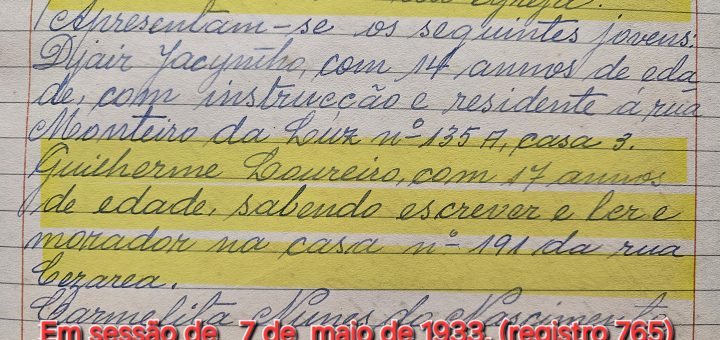 Egreja.
Apresentam-se os seguintes jovens:
Djair Jacyntho, com 14 annos de eda-
de, com instrucção e residente á rua
Monteiro da Luz nº 135 A, casa 3.
Guilherme Loureiro, com 17 annos
de edade, sabendo escrever e ler e
morador na casa nº 191 da rua
Cezarea.
Carmelita Nunes do Nascimento
Em sessão de 7 de maio de 1933. (registro 765)